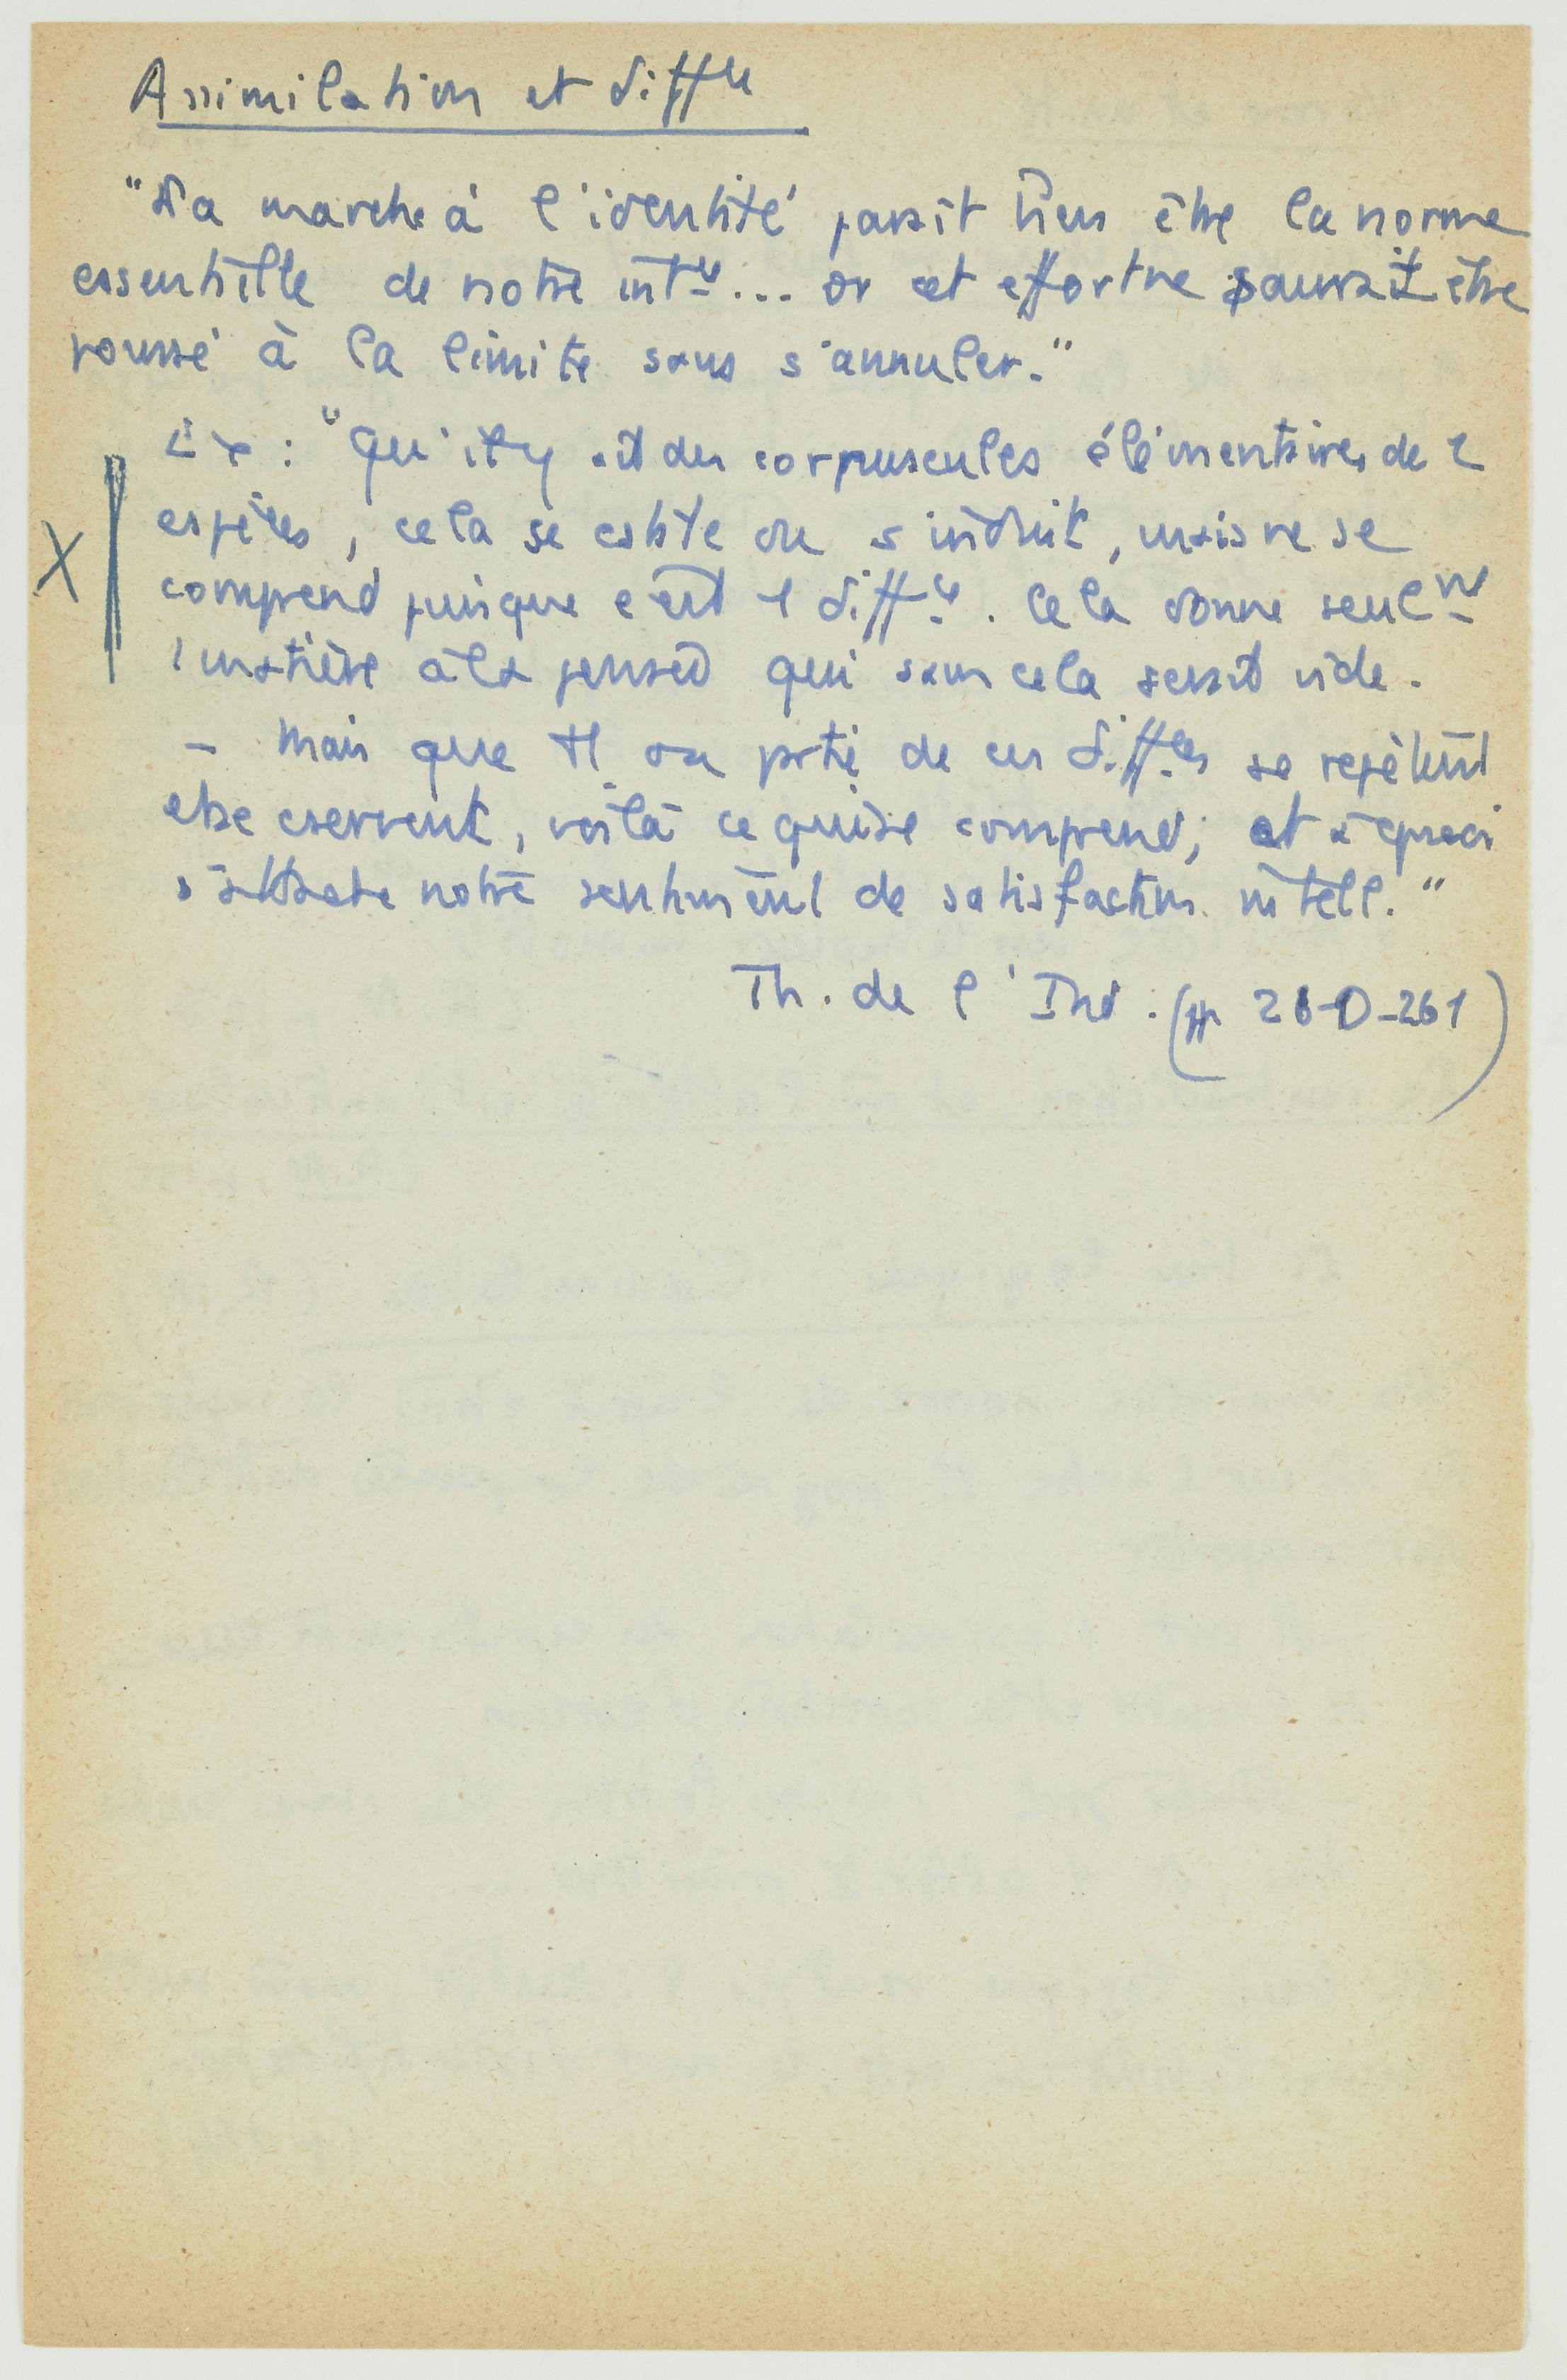 Assimilation et diffce
"La marche à l'identité parait bien être la norme
essentielle de notre intce... or cet effort ne saurait être
poussé à la limite sans s'annuler."
Ex : "Qu'il y ait des corpuscules élémentaires de 2
espèces, cela se cstate ou s'induit, mais ne se
comprend puisque c'est 1 diffce. Cela donne seulnt
1 matière à la pensée qui sans cela serait vide.
- Mais que tt ou partie de ces diffces se répètent
et se cservent, voilà ce qui se comprend; et à quoi
s'attache notre sentiment de satisfaction intell."
Th. de l'Ind. (pp 260-261)
X